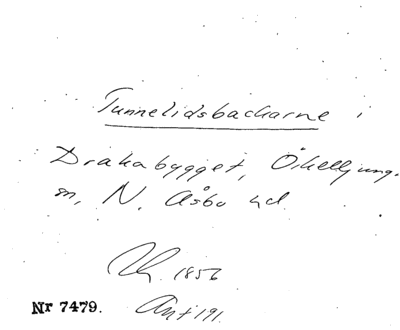 Tunnelidsbackarne i
Drakabygget, Örkelljunga
sn, N. Åsbo hd.
1856
Nr 7479.
Ant 191.